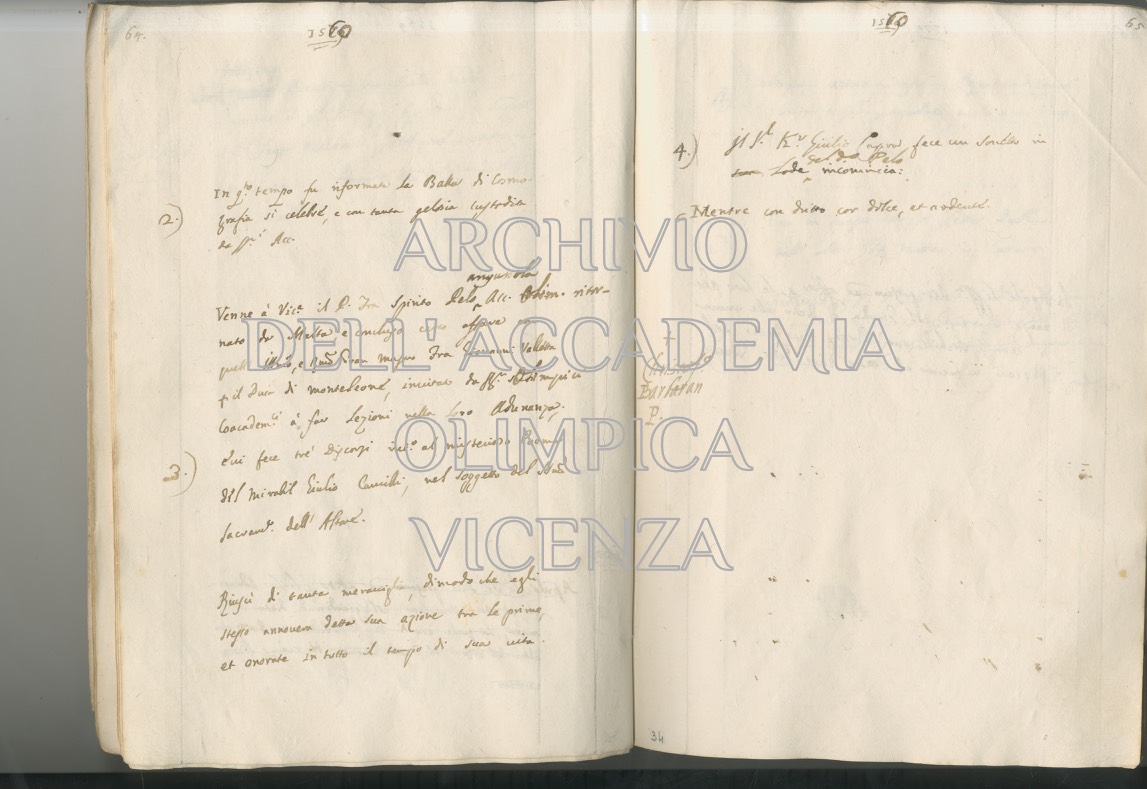 64.
1560
2.)
In q.to tempo fu riformata la Balla di Cosmo-
grafia si celebre, e con tanta gelosia custodita
da ss.i Acc.
anguisola
Venne à Vic.a il P. Fra Spirito Pelo Acc. Olim. ritor-
nato da Malta e
quell' Ill.mo, e Gran Mastro Fra Giovanni Valetta
il Duca di Monteleone, invitato da Olimpici
Coacadem.ci à far Lezioni nella loro Adunanza,
3.)
e lui fece tré Discorsi al misterioso
del Mirabil Giulio Camilli, nel soggetto del
Sacram.to dell' Altare.
Riuscì di tanta meraviglia, dimodo che egli
stesso annovera detta sua azione tra le prime,
et onorate in tutto il tempo di sua vita.
1560
65
4.)
Il S.r K.r Giulio Capra fece un Sonetto in
del da Pelo
Lode incomincia:
Mentre con dritto cor dolce, et ardente.
Barbaran
P.
34
ARCHIVIO
DELL'ACCADEMIA
OLIMPICA
VICENZA